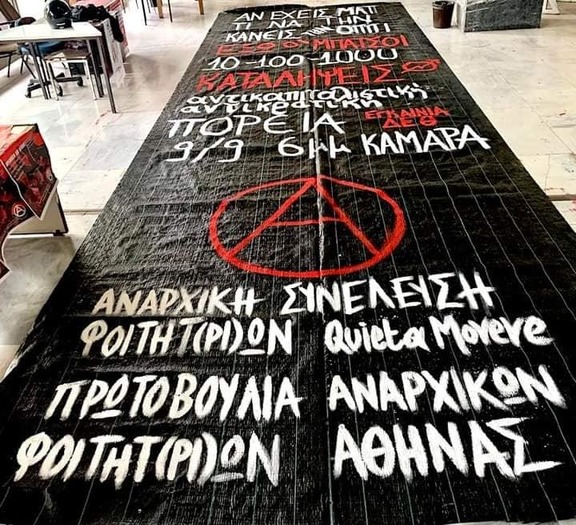 ΑΝ ΕΧΕΙΣ ΜΑΤΙ
ΤΙ ΝΑ ΤΗΝ
ΚΑΝΕΙΣ ΤΗΝ ΟΠΠΙ
ΕΞΩ ΟΙ ΜΠΑΤΣΟΙ
10-100-1000
ΚΑΤΑΛΗΨΕΙΣ
αντικαπιταλιστική
αντικρατική
ΠΟΡΕΙΑ ΕΓΚΑΙΝΙΑ
ΔΕΘ
9/9 6μμ ΚΑΜΑΡΑ
Α
ΑΝΑΡΧΙΚΗ ΣΥΝΕΛΕΥΣΗ
ΦΟΙΤΗΤ(ΡΙ)ΩΝ Quieta Movere
ΠΡΩΤΟΒΟΥΛΙΑ ΑΝΑΡΧΙΚΩΝ
ΦΟΙΤΗΤ(ΡΙ)ΩΝ ΑΘΗΝΑΣ